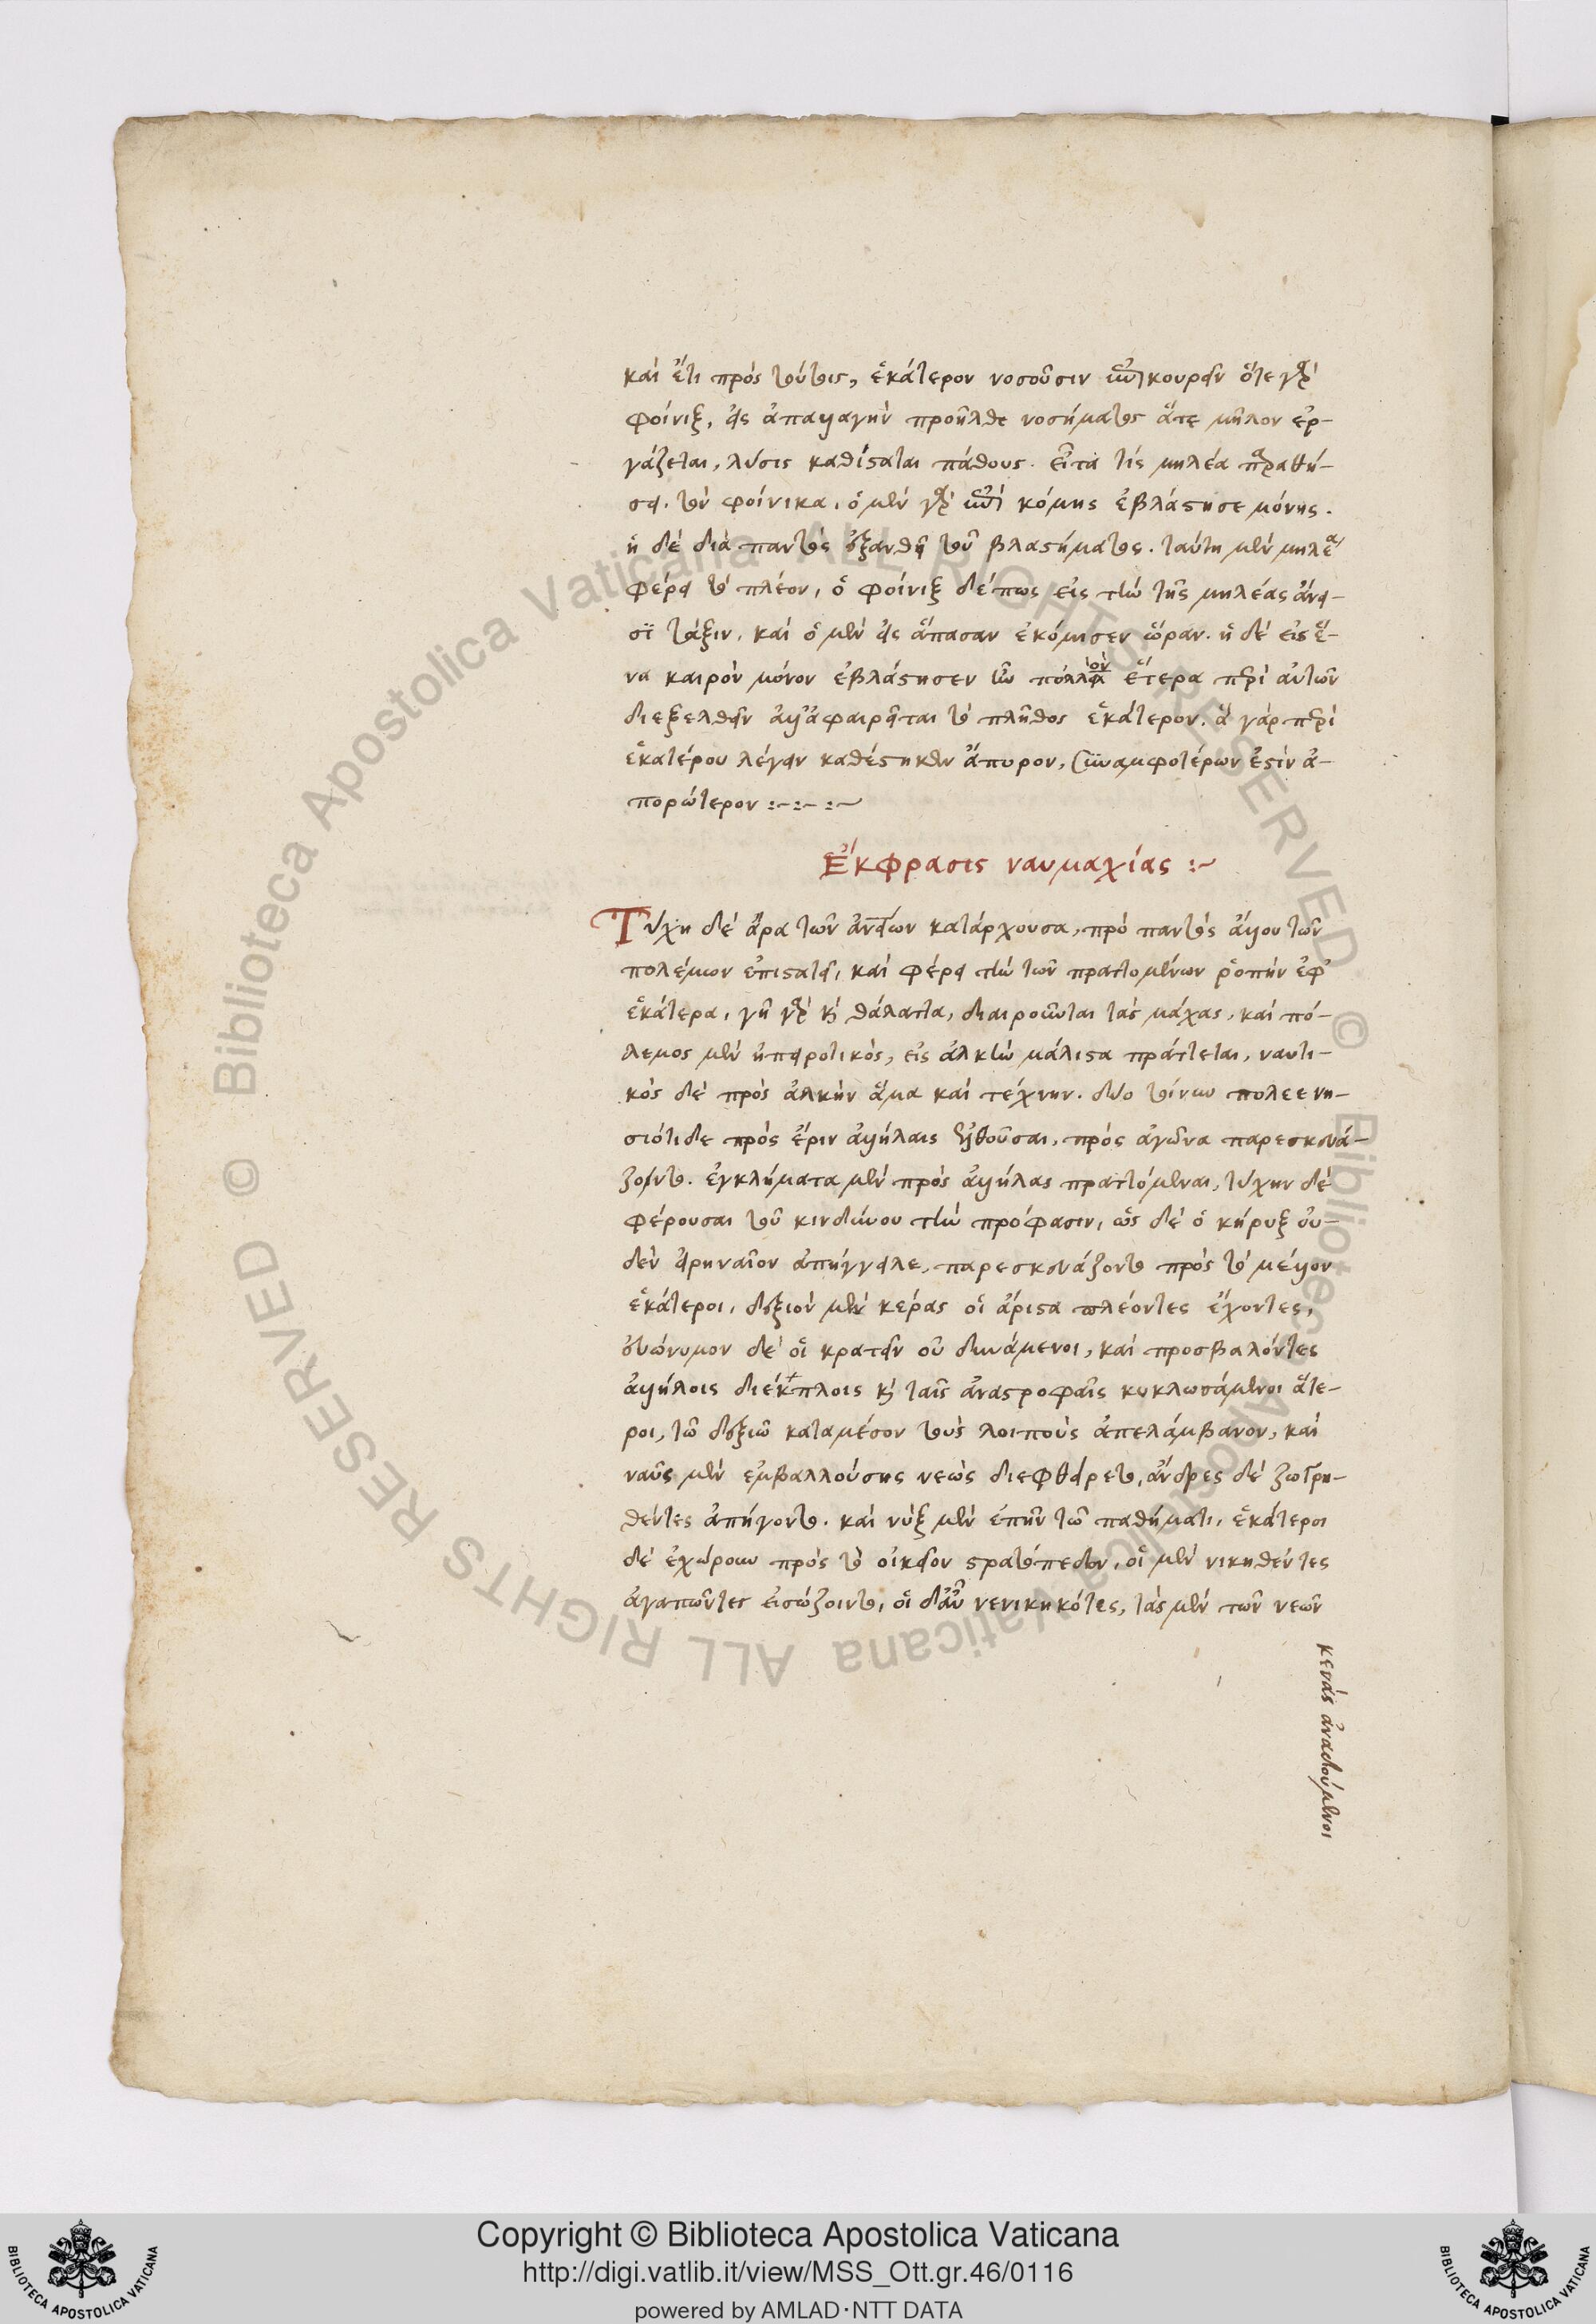 καὶ ἔτι πρὸς τούτοις, ἑκάτερον νοσοῦσιν ἐπικουρεῖν ὅτε γὰρ
φοίνιξ, εἰς ἀπαλλαγὴν προῆλθε νοσήματος ἅτε μῆλον ἐρ-
γάζεται, λύσις καθίσταται πάθους. εἶτα τίς μηλέα παραθή-
σει τὸν φοίνικα, ὁ μὲν γὰρ ἐπὶ κόμης ἐβλάστησε μόνης.
ἡ δὲ διὰ παντὸς ἐξανθῇ τοῦ βλαστήματος. ταύτη μὲν μηλέα
φέρει τὸ πλέον, ὁ φοίνιξ δέ πως εἰς τὴν τῆς μηλέας ἄνει-
σϊ τάξιν, καὶ ὁ μὲν εἰς ἅπασαν ἐκόμησεν ὥραν. ἡ δὲ εἰς ἕ-
να καιρὸν μόνον ἐβλάστησεν ὧν πολλὰ ἕτερα περὶ αὐτῶν
διεξελθεῖν ἀλλ' ἀφαιρεῖται τὸ πλῆθος ἑκάτερον. ἃ γὰρ περὶ
ἑκατέρου λέγειν καθέστηκεν ἄπορον, συναμφοτέρων ἐστὶν ἀ-
πορώτερον :-:- :~
Ἔκφρασις ναυμαχίας :~
Τύχη δὲ ἄρα τῶν ἀνθρώπων κατάρχουσα, πρὸ παντὸς ἄλλου τῶν
πολέμων ἐπιστατεῖ, καὶ φέρει τὴν τῶν πραττομένων ῥοπὴν ἐφ'
ἑκάτερα, γῆ γὰρ καὶ θάλαττα, διαιροῦνται τὰς μάχας, καὶ πό-
λεμος μὲν ἠπειροτικὸς, εἰς ἀλκὴν μάλιστα πράττεται, ναυτι-
κὸς δὲ πρὸς ἀλκὴν ἅμα καὶ τέχνην. δύο τοίνυν πόλεε νη-
σιότιδε πρὸς ἔριν ἀλλήλαις ἐλθοῦσαι, πρὸς ἀγῶνα παρεσκευά-
ζοντο. ἐγκλήματα μὲν πρὸς ἀλλήλας πραττόμεναι, τύχην δὲ
φέρουσαι τοῦ κινδύνου τὴν πρόφασιν, ὡς δὲ ὁ κήρυξ οὐ-
δὲν εἰρηναῖον ἀπήγγειλε, παρεσκευάζοντο πρὸς τὸ μέλλον
ἑκάτεροι, δεξιὸν μὲν κέρας οἱ ἄριστα πλέοντες ἔχοντες,
εὐώνυμον δὲ οἱ κρατεῖν οὐ δυνάμενοι, καὶ προσβαλόντες
ἀλλήλοις διέκπλοις καὶ ταῖς ἀναστροφαῖς κυκλωσάμενοι ἅτε-
ροι, τῶ δεξιῶ καταμέσον τοὺς λοιποὺς ἀπελάμβανον, καὶ
ναῦς μὲν ἐμβαλλούσης νεὼς διεφθείρετο, ἄνδρες δὲ ζωγρη-
θέντες ἀπήγοντο. καὶ νὺξ μὲν ἐπῆν τῶ παθήματι, ἑκάτεροι
δὲ ἐχώρουν πρὸς τὸ οἰκεῖον στρατόπεδον, οἱ μὲν νικηθέντες
ἀγαπῶντες εἰ σώζοιντο, οἱ δ' αὖ νενικηκότες, τὰς μὲν τῶν νεῶν
κενὰς ἀναδούμενοι
Copyright © Biblioteca Apostolica Vaticana
http://digi.vatlib.it/view/MSS_Ott.gr.46/0116
powered by AMLAD·NTT DATA